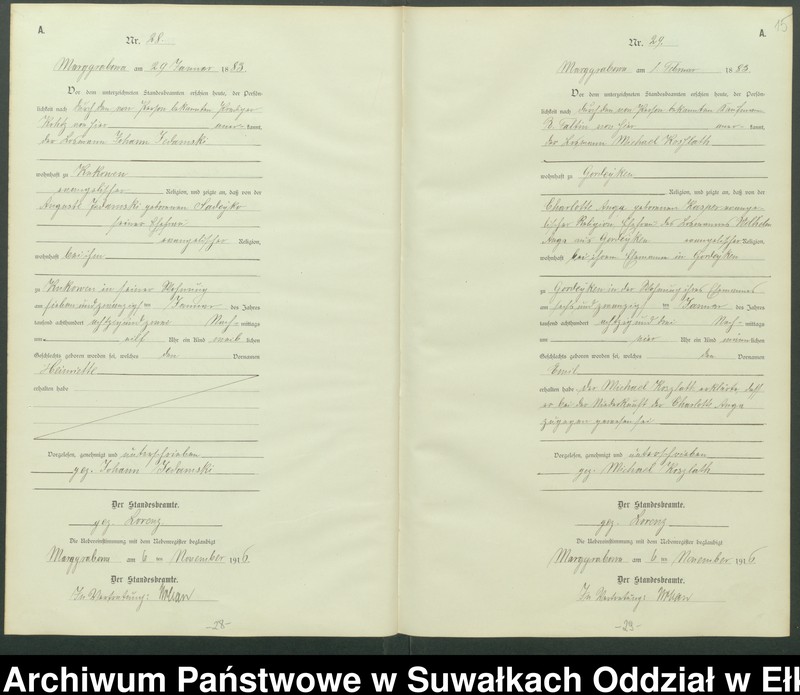 A.
Nr. 28.
Marggrabowa am 29 Januar 1883.
Vor dem unterzeichneten Standesbeamten erschien heute, der Persön-
lichkeit nach durch den von Person bekannten
von hier aner kannt,
der Losmann Johann Jedamski
wohnhaft zu Kukowen
evangelischer Religion, und zeigte an, daß von der
Auguste Jedamski geborenen Sadeyko
seiner Ehefrau
evangelischer Religion,
wohnhaft bei ihm
zu Kukowen in seiner Wohnung
am sieben und zwanzigsten Januar des Jahres
tausend achthundert achtzig und Nach-mittags
um elf Uhr ein Kind weib lichen
Geschlechts geboren worden sei, welches den Vornamen
Henriette
erhalten habe
Vorgelesen, genehmigt und unterschrieben
gez. Johann Jedamski
Der Standesbeamte.
gez. Lorenz
Die Uebereinstimmung mit dem Nebenregister beglaubigt
Marggrabowa am 6 ten November 1916.
Der Standesbeamte.
In Vertretung:
-28-
15
A.
Nr. 29.
Marggrabowa am 1 Februar 1883.
Vor dem unterzeichneten Standesbeamten erschien heute, der Persön-
lichkeit nach durch den von Person bekannten Kaufmann
von hier aner kannt,
der Losmann Michael Koszlath
wohnhaft zu Gordeyken
Religion, und zeigte an, daß von der
Charlotte Anga geborenen Kasper evange-
lischer Religion, Ehefrau des Losmanns Wilhelm
Anga aus Gordeyken evangelischer Religion,
wohnhaft bei ihrem Ehemann in Gordeyken
zu Gordeyken in der Wohnung ihres Ehemannes
am sechs und zwanzigsten Januar des Jahres
tausend achthundert achtzig und drei Nach-mittags
um vier Uhr ein Kind männ lichen
Geschlechts geboren worden sei, welches den Vornamen
Emil
erhalten habe. Der Michael Koszlath erklärte, daß
er bei der Niederkunft der Charlotte Anga
zugegen gewesen sei
Vorgelesen, genehmigt und unterschrieben
gez. Michael Koszlath
Der Standesbeamte.
gez. Lorenz
Die Uebereinstimmung mit dem Nebenregister beglaubigt
Marggrabowa am 6 ten November 1916
Der Standesbeamte.
In Vertretung:
-29-
Archiwum Państwowe w Suwałkach Oddział w Ełk